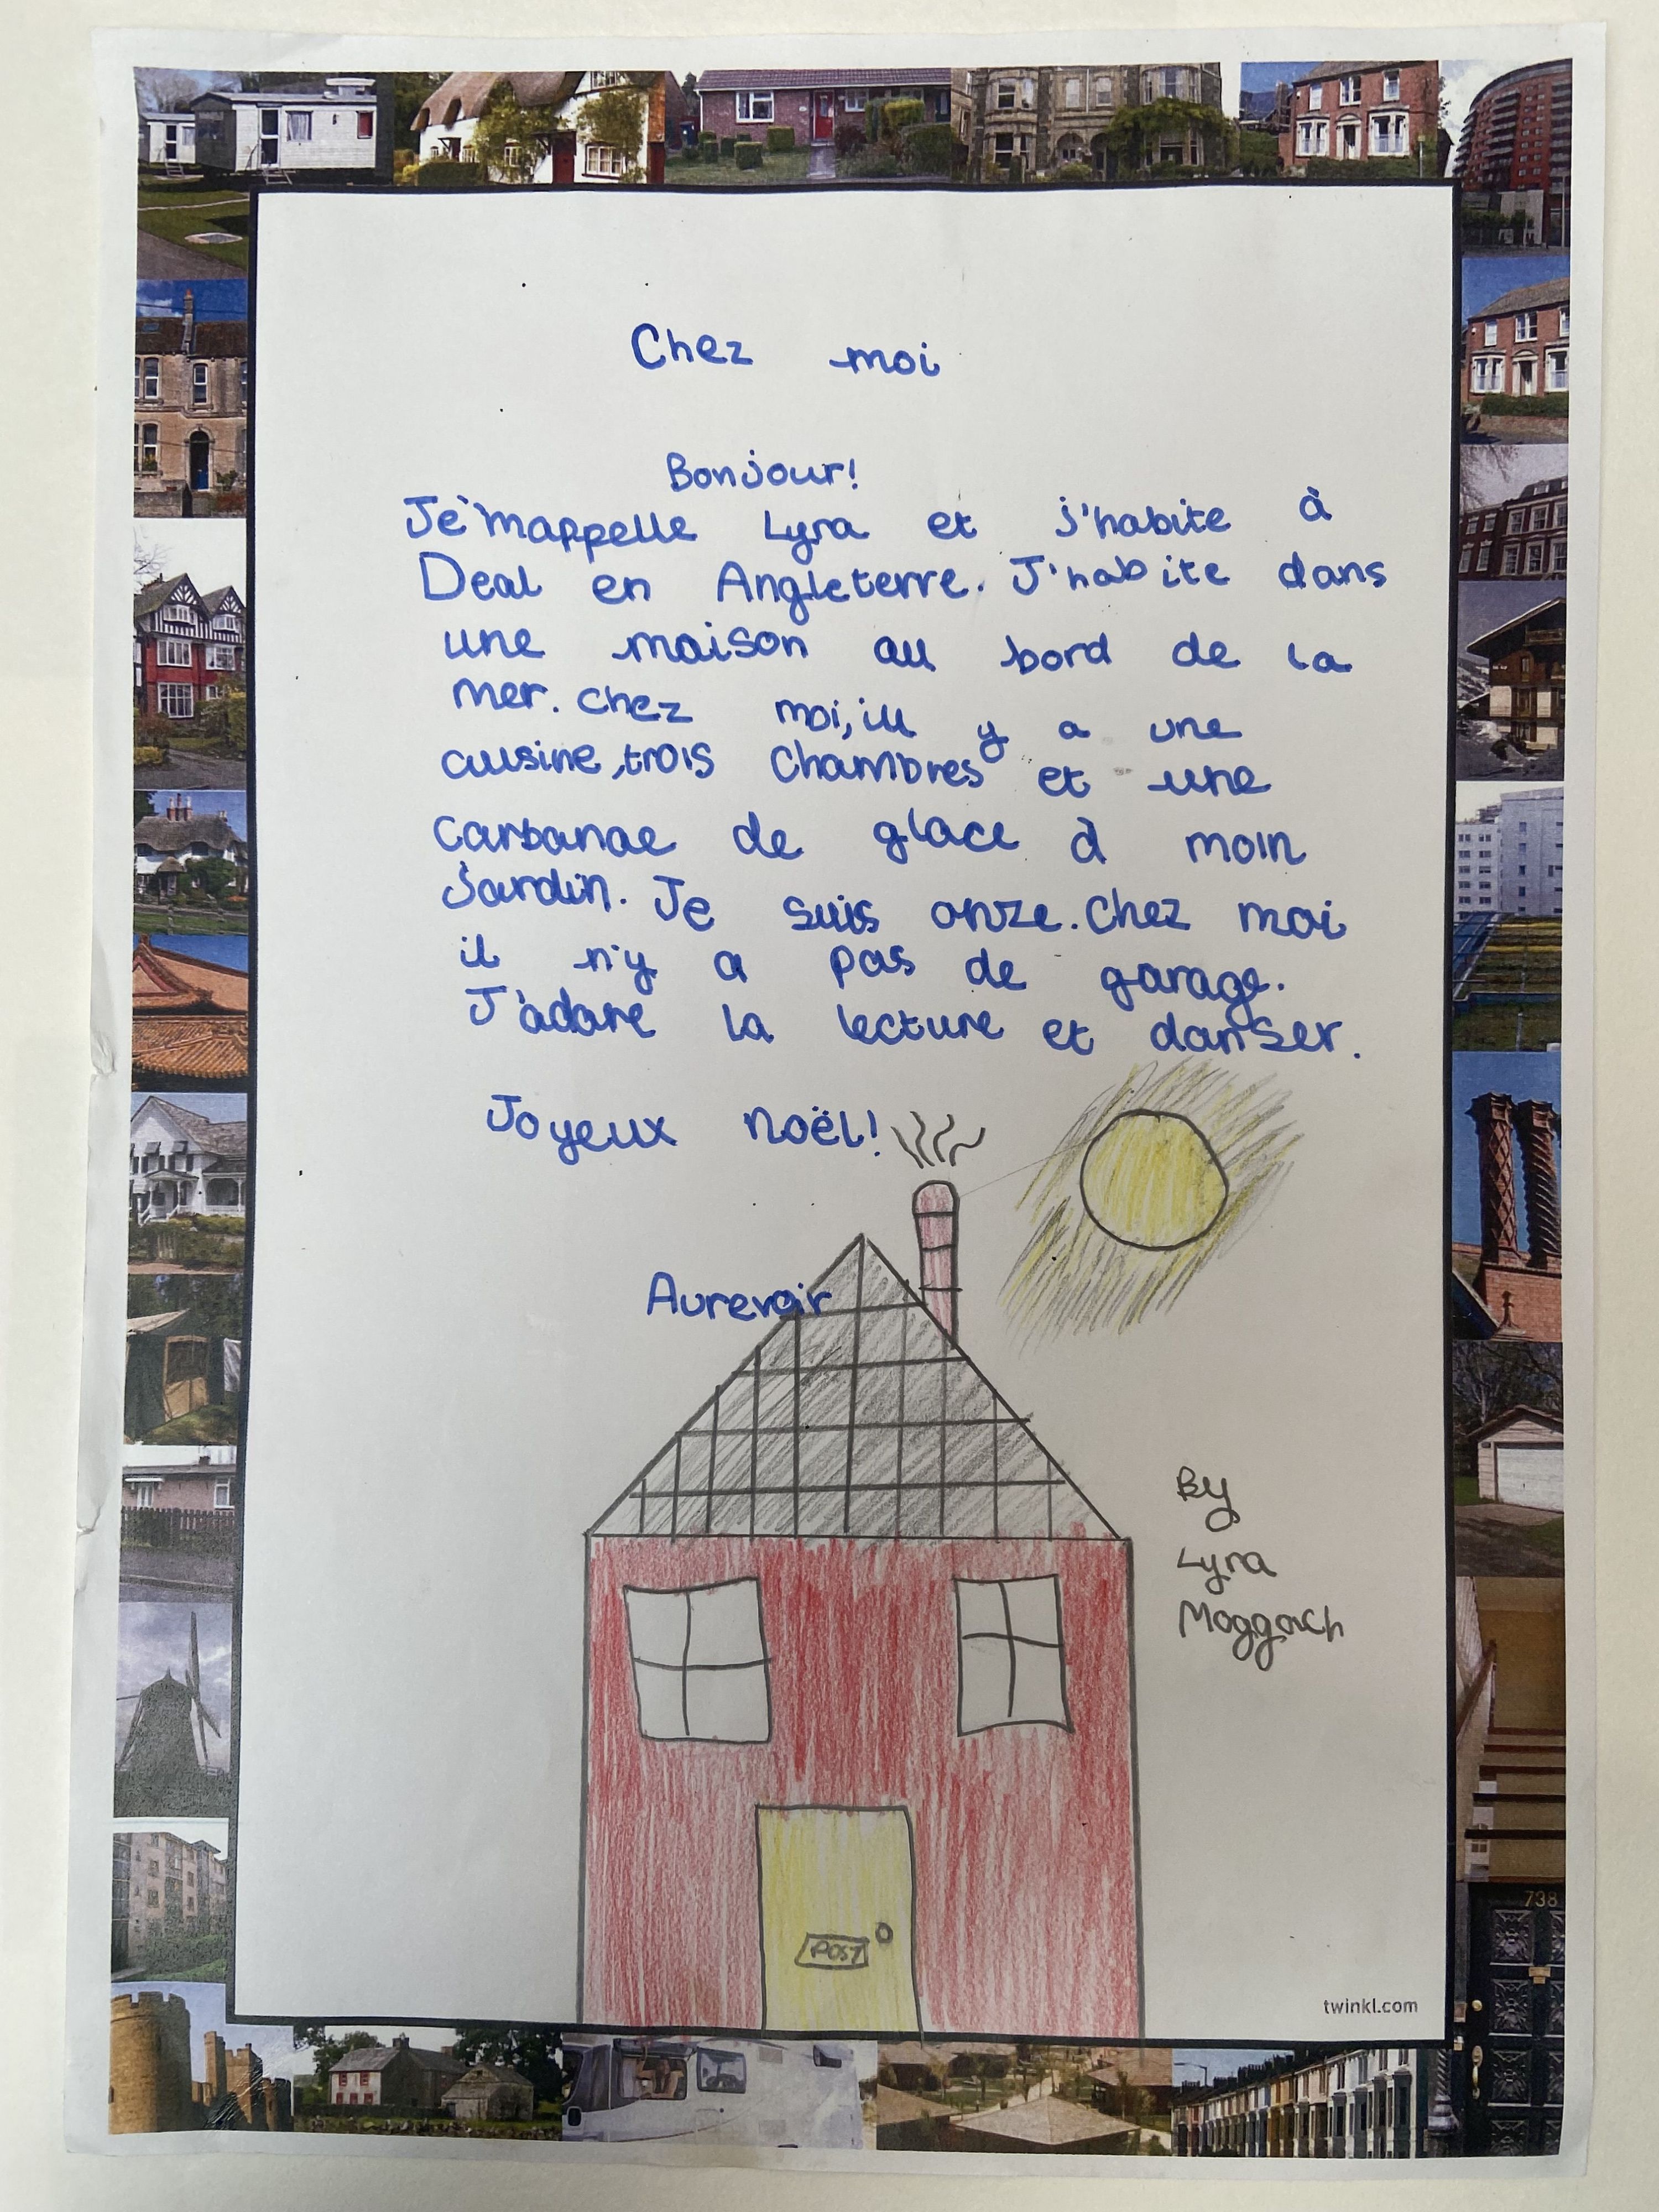 Chez moi
Bonjour!
Je'mappelle Lyra et j'habite à
Deal en Angleterre. J'habite dans
une maison au bord de la
mer. chez moi, ill y a une
cuisine, trois chambres et une
carbanae de glace à moin
jardin. Je suis onze. Chez moi
il n'y a pas de garage.
J'adore la lecture et danser.
Joyeux noël!
Aurevoir
By
Lyra
Moggach
POST
738
twinkl.com